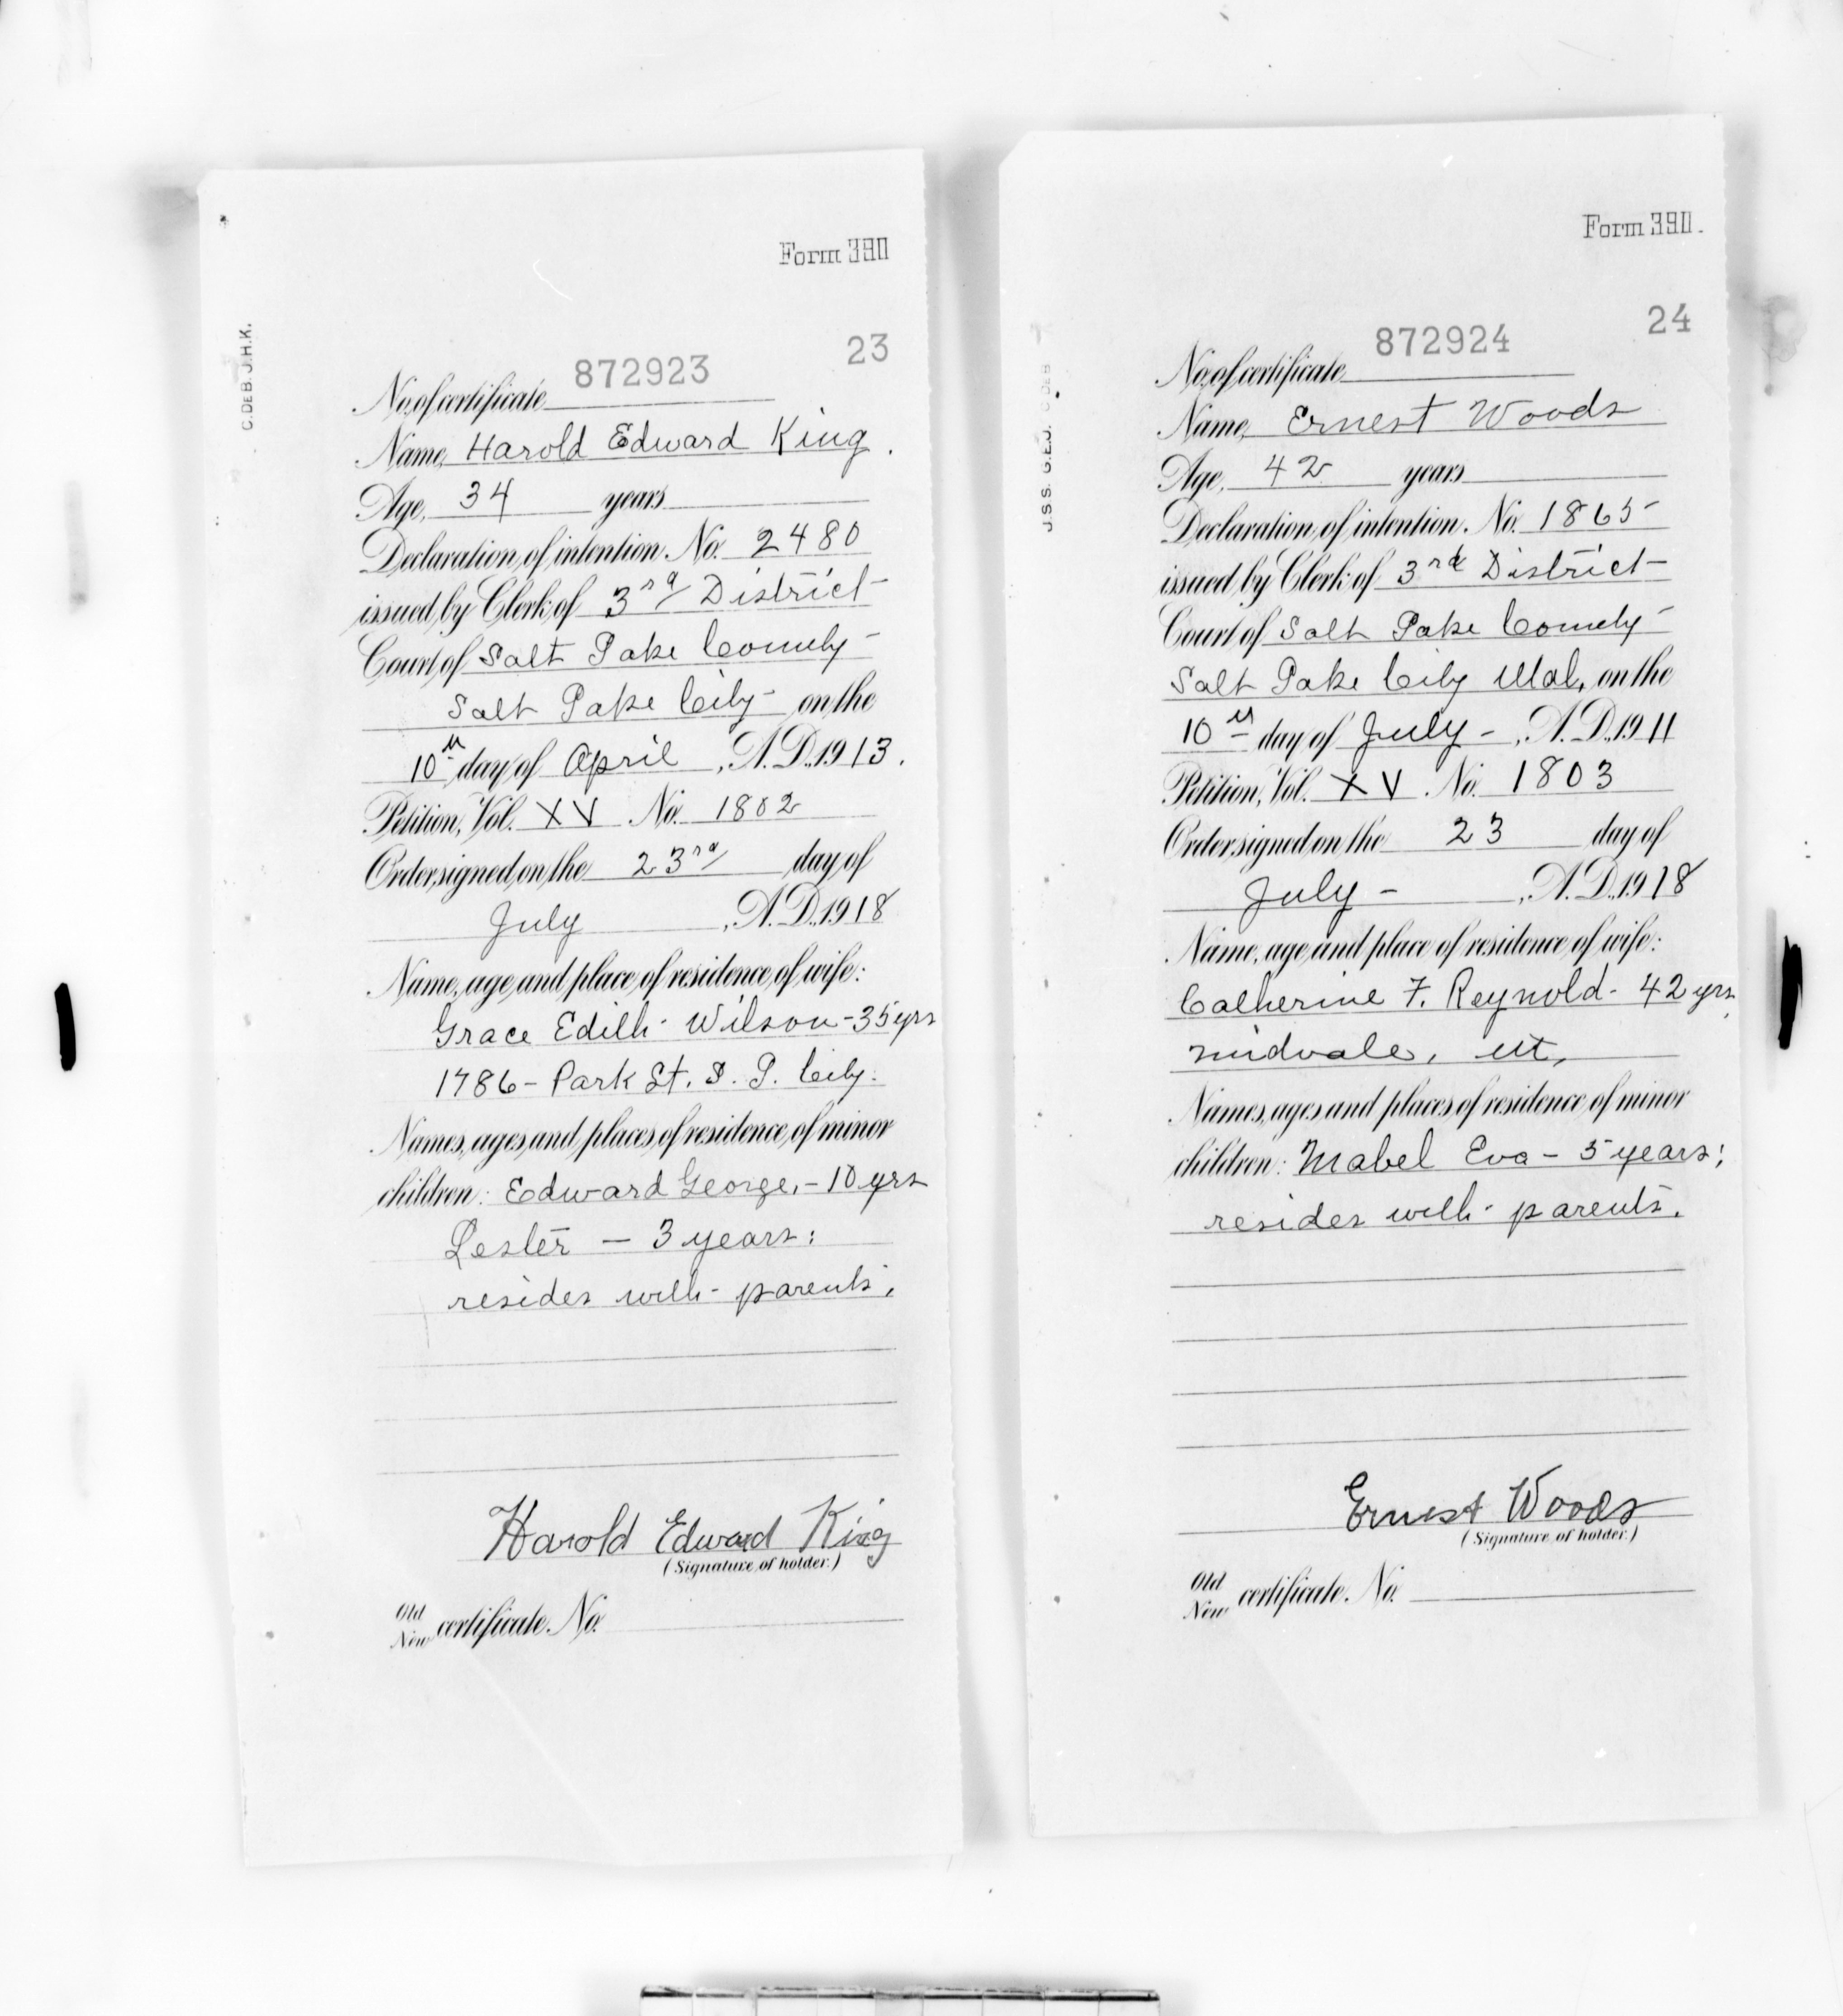 Form 390
C.DEB. J.H.K.
23
No. of certificate 872923
Name, Harold Edward King.
Age, 34 years
Declaration of intention No. 2480
issued by Clerk of 3rd District
Court of Salt Lake County
Salt Lake City on the
10th day of April, A.D. 1913.
Petition, Vol. XV No. 1802
Order signed on the 23rd day of
July, A.D. 1918
Name, age and place of residence of wife:
Grace Edith Wilson - 35 yrs
1786 - Park St. S. L. City.
Names, ages and places of residence of minor
children: Edward George, - 10 yrs
Lester - 3 years:
resides with parents.
Harold Edward King
(Signature of holder.)
Old
New certificate No.
Form 390.
J.S.S. G.E.J. C.DEB
24
No. of certificate 872924
Name, Ernest Woods
Age, 42 years
Declaration of intention No. 1865
issued by Clerk of 3rd District
Court of Salt Lake County
Salt Lake City Utah, on the
10th day of July -, A.D. 1911
Petition, Vol. XV No. 1803
Order signed on the 23 day of
July -, A.D. 1918
Name, age and place of residence of wife:
Catherine F. Reynold - 42 yrs
Midvale, Ut,
Names, ages and places of residence of minor
children: Mabel Eva - 5 years;
resides with parents.
Ernest Woods
(Signature of holder.)
Old
New certificate No.